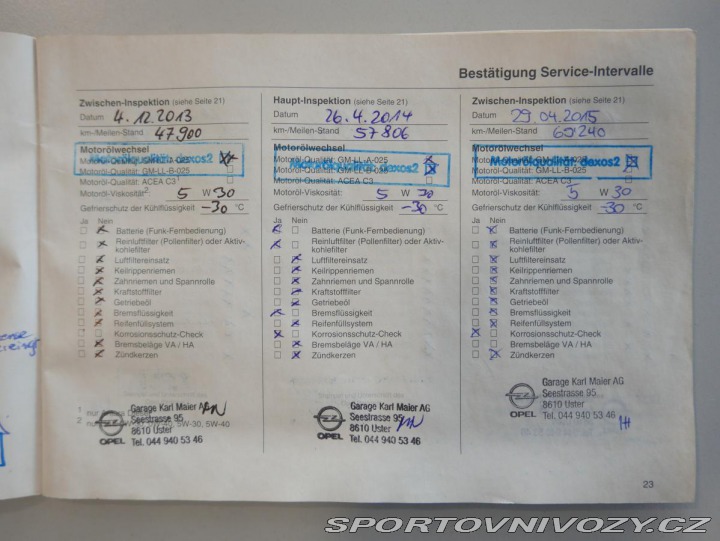 Bestätigung Service-Intervalle
Zwischen-Inspektion (siehe Seite 21)
Datum 4.12.2013
km-/Meilen-Stand 47900
Motorölwechsel
Motorölqualität dexos2
Motoröl-Qualität: GM-LL-A-025
Motoröl-Qualität: GM-LL-B-025
Motoröl-Qualität: ACEA C3
Motoröl-Viskosität: 5 W 30
Gefrierschutz der Kühlflüssigkeit -30 °C
Ja Nein
Batterie (Funk-Fernbedienung)
Reinluftfilter (Pollenfilter) oder Aktiv-
kohlefilter
Luftfiltereinsatz
Keilrippenriemen
Zahnriemen und Spannrolle
Kraftstofffilter
Getriebeöl
Bremsflüssigkeit
Reifenfüllsystem
Korrosionsschutz-Check
Bremsbeläge VA / HA
Zündkerzen
1 nur
2 nur 5W-30, 5W-40
OPEL
Garage Karl Maier AG
Seestrasse 95
8610 Uster
Tel. 044 940 53 46
Haupt-Inspektion (siehe Seite 21)
Datum 26.4.2014
km-/Meilen-Stand 57806
Motorölwechsel
Motoröl-Qualität: GM-LL-A-025
Motorölqualität dexos2
Motoröl-Qualität: GM-LL-B-025
Motoröl-Qualität: ACEA C3
Motoröl-Viskosität: 5 W 30
Gefrierschutz der Kühlflüssigkeit -30 °C
Ja Nein
Batterie (Funk-Fernbedienung)
Reinluftfilter (Pollenfilter) oder Aktiv-
kohlefilter
Luftfiltereinsatz
Keilrippenriemen
Zahnriemen und Spannrolle
Kraftstofffilter
Getriebeöl
Bremsflüssigkeit
Reifenfüllsystem
Korrosionsschutz-Check
Bremsbeläge VA / HA
Zündkerzen
OPEL
Garage Karl Maier AG
Seestrasse 95
8610 Uster
Tel. 044 940 53 46
Zwischen-Inspektion (siehe Seite 21)
Datum 29.04.2015
km-/Meilen-Stand 69240
Motorölwechsel
Motorölqualität dexos2
Motoröl-Qualität: GM-LL-B-025
Motoröl-Qualität: ACEA C3
Motoröl-Viskosität: 5 W 30
Gefrierschutz der Kühlflüssigkeit -30 °C
Ja Nein
Batterie (Funk-Fernbedienung)
Reinluftfilter (Pollenfilter) oder Aktiv-
kohlefilter
Luftfiltereinsatz
Keilrippenriemen
Zahnriemen und Spannrolle
Kraftstofffilter
Getriebeöl
Bremsflüssigkeit
Reifenfüllsystem
Korrosionsschutz-Check
Bremsbeläge VA / HA
Zündkerzen
OPEL
Garage Karl Maier AG
Seestrasse 95
8610 Uster
Tel. 044 940 53 46
23
SPORTOVNIVOZY.CZ